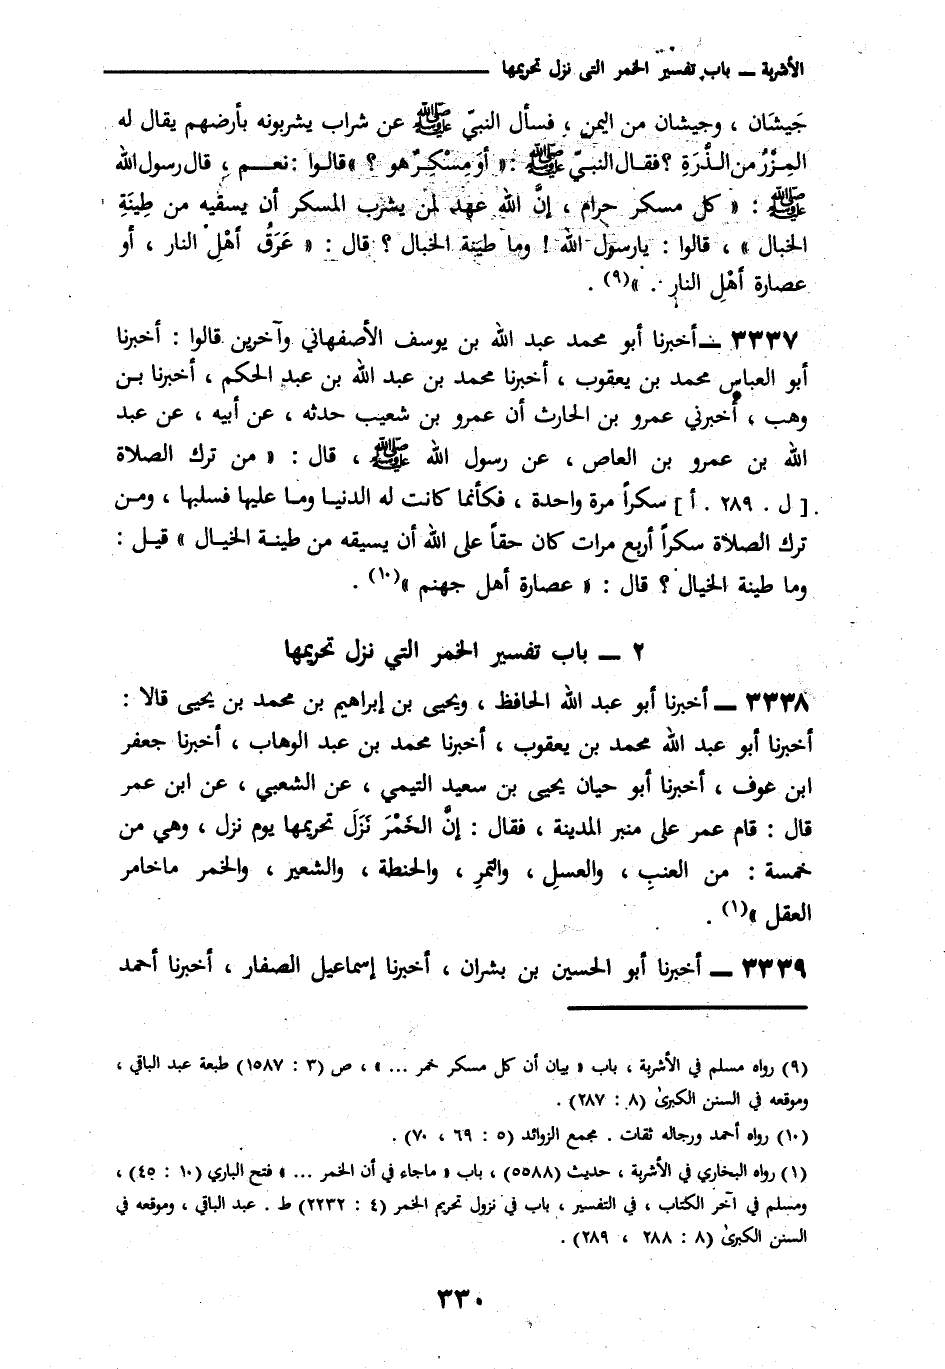 الأشربة ــ باب تفسير الخمر التى نزل تحريمها
جَيشَان ، وجيشان من اليمن ، فسأل النبيّ ﷺ عن شراب يشربونه بأرضهم يقال له
المِزْرُ من الذُّرَةِ ؟ فقال النبيّ ﷺ : « أَوَ مِسْكِرٌ هو ؟ » قالوا : نعم ، قال رسول الله
ﷺ : « كل مسكر حرام ، إنَّ الله عهد لمن يشرب المسكر أن يسقيه من طِينَةِ
الخبال » ، قالوا : يارسول الله ! وما طينة الخبال ؟ قال : « عَرَقُ أهْلِ النار ، أو
عصارة أهْلِ النار . »(٩) .
٣٣٣٧ ــ أخبرنا أبو محمد عبد الله بن يوسف الأصفهاني وآخرين قالوا : أخبرنا
أبو العباس محمد بن يعقوب ، أخبرنا محمد بن عبد الله بن عبد الحكم ، أخبرنا بن
وهب ، أخبرني عمرو بن الحارث أن عمرو بن شعيب حدثه ، عن أبيه ، عن عبد
الله بن عمرو بن العاص ، عن رسول الله ﷺ ، قال : « من ترك الصلاة
[ ل . ٢٨٩ . أ ] سكراً مرة واحدة ، فكأنما كانت له الدنيا وما عليها فسلبها ، ومن
ترك الصلاة سكراً أربع مرات كان حقاً على الله أن يسيقه من طينة الخيال » قيل :
وما طينة الخيال ؟ قال : « عصارة أهل جهنم »(١٠) .
٢ ــ باب تفسير الخمر التي نزل تحريمها
٣٣٣٨ ــ أخبرنا أبو عبد الله الحافظ ، ويحيى بن إبراهيم بن محمد بن يحيى قالا :
أخبرنا أبو عبد الله محمد بن يعقوب ، أخبرنا محمد بن عبد الوهاب ، أخبرنا جعفر
ابن عوف ، أخبرنا أبو حيان يحيى بن سعيد التيمي ، عن الشعبي ، عن ابن عمر
قال : قام عمر على منبر المدينة ، فقال : إنَّ الخَمْرَ نَزَلَ تحريمها يوم نزل ، وهي من
خمسة : من العنبِ ، والعسلِ ، والتمرِ ، والحنطة ، والشعير ، والخمر ماخامر
العقل »(١) .
٣٣٣٩ ــ أخبرنا أبو الحسين بن بشران ، أخبرنا إسماعيل الصفار ، أخبرنا أحمد
(٩) رواه مسلم في الأشربة ، باب « بيان أن كل مسكر خمر ... » ، ص (٣ : ١٥٨٧) طبعة عبد الباقي ،
وموقعه في السنن الكبرىٰ (٨ : ٢٨٧) .
(١٠) رواه أحمد ورجاله ثقات . مجمع الزوائد (٥ : ٦٩ ، ٧٠) .
(١) رواه البخاري في الأشربة ، حديث (٥٥٨٨) ، باب « ماجاء في أن الخمر ... » فتح الباري (١٠ : ٤٥) ،
ومسلم في آخر الكتاب ، في التفسير ، باب في نزول تحريم الخمر (٤ : ٢٢٣٢) ط . عبد الباقي ، وموقعه في
السنن الكبرىٰ (٨ : ٢٨٨ ، ٢٨٩) .
٣٣٠